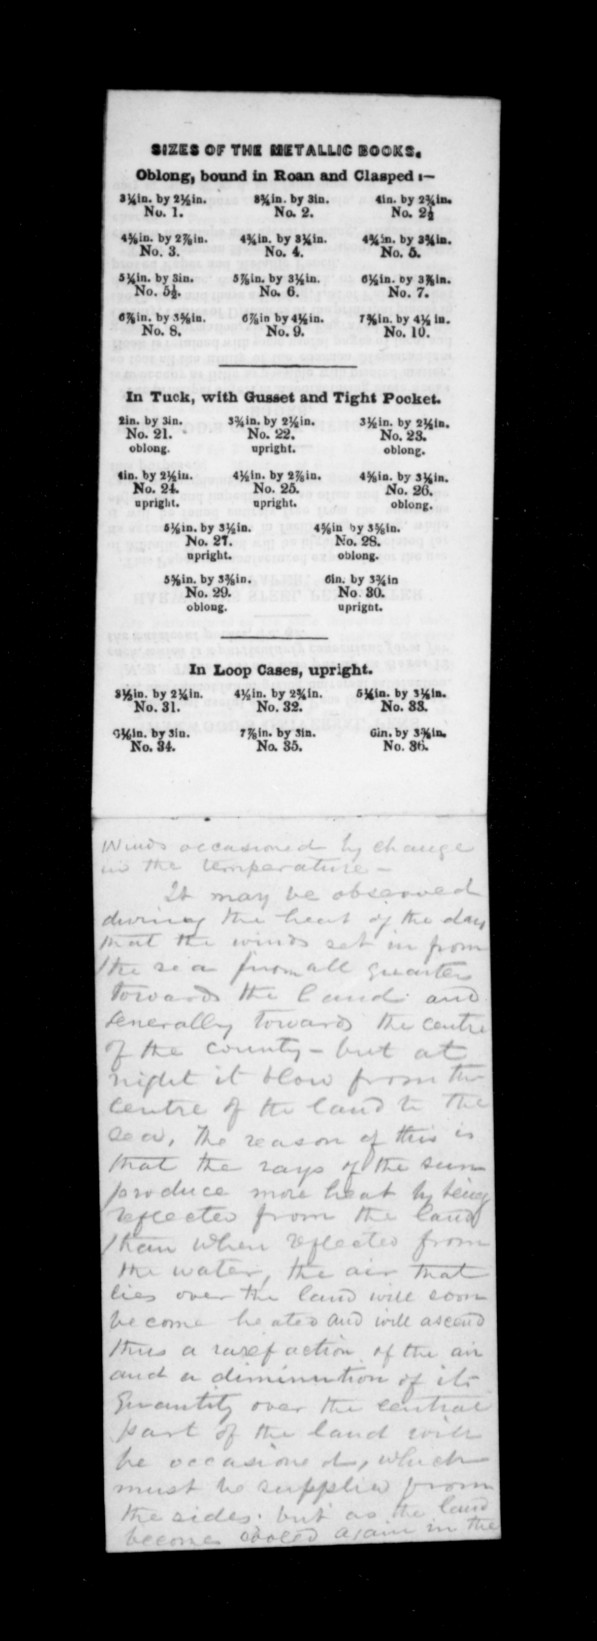 SIZES OF THE METALLIC BOOKS.
Oblong, bound in Roan and Clasped :—
3¼in. by 2½in. 3¾in. by 3in. 4in. by 2¾in.
No. 1. No. 2. No. 2½
4⅜in. by 2⅞in. 4⅜in. by 3¼in. 4¾in. by 3¾in.
No. 3. No. 4. No. 5.
5¼in. by 3in. 5⅞in. by 3½in. 6½in. by 3⅜in.
No. 5½. No. 6. No. 7.
6⅞in. by 3⅝in. 6⅞in by 4½in. 7⅝in. by 4½ in.
No. 8. No. 9. No. 10.
In Tuck, with Gusset and Tight Pocket.
2in. by 3in. 3¾in. by 2½in. 3½in. by 2½in.
No. 21. No. 22. No. 23.
oblong. upright. oblong.
4in. by 2½in. 4½in. by 2⅞in. 4⅝in. by 3¼in.
No. 24. No. 25. No. 26.
upright. upright. oblong.
5½in. by 3½in. 4⅝in by 3⅝in.
No. 27. No. 28.
upright. oblong.
5⅝in. by 3⅜in. 6in. by 3¾in
No. 29. No 30.
oblong. upright.
In Loop Cases, upright.
3½in. by 2¼in. 4½in. by 2¾in. 5¼in. by 3¼in.
No. 31. No. 32. No. 33.
6¼in. by 3in. 7⅞in. by 3in. 6in. by 3¾in.
No. 34. No. 35. No. 36.
Winds occasioned by change
in the temperature —
It may be observed
during the heat of the day
that the winds set in from
the sea from all quarters
towards the land and
generally towards the centre
of the county — but at
night it blow from the
centre of the land to the
sea, The reason of this is
that the rays of the sun
produce more heat by being
reflected from the land
than when reflected from
the water, the air that
lies over the land will soon
become heated and will ascend
thus a rarefaction of the air
and a diminution of its
Quantity over the central
part of the land will
be occasioned, which
must be supplied from
the sides. but as the land
becomes cooled again in the